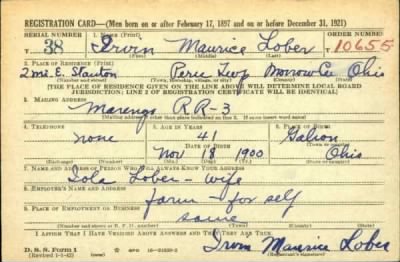 REGISTRATION CARD—(Men born on or after February 17, 1897 and on or before December 31, 1921)
SERIAL NUMBER 1. NAME (Print) ORDER NUMBER
T 38 Irvin Maurice Lober T 10655
(First) (Middle) (Last)
2. PLACE OF RESIDENCE (Print)
2 mi. E. Stanton Peru Twp Morrow Co Ohio
(Number and street) (Town, township, village, or city) (County) (State)
[THE PLACE OF RESIDENCE GIVEN ON THE LINE ABOVE WILL DETERMINE LOCAL BOARD
JURISDICTION; LINE 2 OF REGISTRATION CERTIFICATE WILL BE IDENTICAL]
3. MAILING ADDRESS
Marengo RR-3
[Mailing address if other than place indicated on line 2. If same insert word same]
4. TELEPHONE 5. AGE IN YEARS 6. PLACE OF BIRTH
none 41 Galion
DATE OF BIRTH (Town or county)
Nov 18 1900 Ohio
(Exchange) (Number) (Mo.) (Day) (Yr.) (State or country)
7. NAME AND ADDRESS OF PERSON WHO WILL ALWAYS KNOW YOUR ADDRESS
Lober - wife
8. EMPLOYER'S NAME AND ADDRESS
farm - for self
9. PLACE OF EMPLOYMENT OR BUSINESS
same
(Number and street or R. F. D. number) (Town) (County) (State)
I AFFIRM THAT I HAVE VERIFIED ABOVE ANSWERS AND THAT THEY ARE TRUE.
D. S. S. Form 1
(Revised 1-1-42) GPO 16-21630-2 Irvin Maurice Lober
(Registrant's signature)